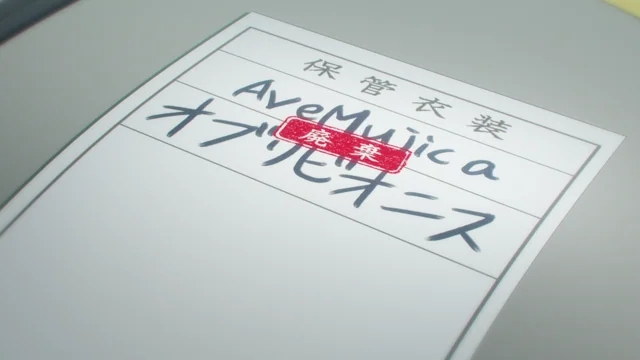 保管衣装
AveMujica
廃棄
オブリビオニス